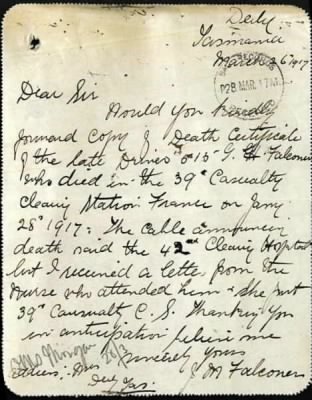 Derby
Tasmania
March 26 1917
28 MAR 17
Dear Sir
Would you kindly
forward copy of Death Certificate
of the late Driver G. H. Falconer
who died in the 39th Casualty
Clearing Station France on Jany
28th 1917: The cable announcing
death said the 42nd Clearing Hospital
but I received a letter from the
Nurse who attended him & she put
39th Causualty C. S. Thanking you
in anticipation believe me
Sincerely Yours
Falconer
address:
Derby Tas.
28/3